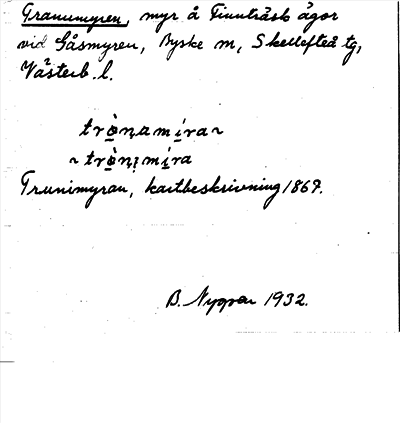 Granumyren, myr å Finnträsk ägor
vid Gåsmyren, Byske m, Skellefteå tg,
Västerb. l.
trò̱namí̱ra ~
~ trò̱nimí̱ra
Trunimyran, kartbeskrivning 1867.
B. Nygren 1932.